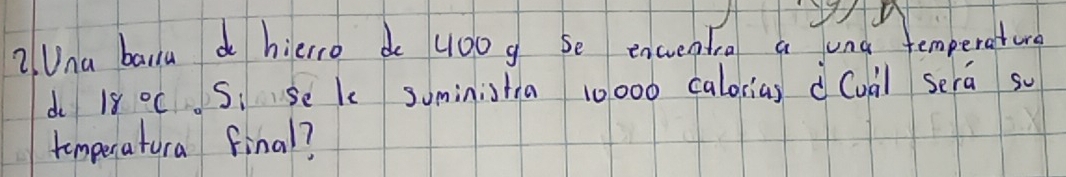 2. Una barra de hierro de 400 g se encuentra a una temperatura
de 18 °C. Si se le suministra 10000 calorias ¿Cuál será su
temperatura final?